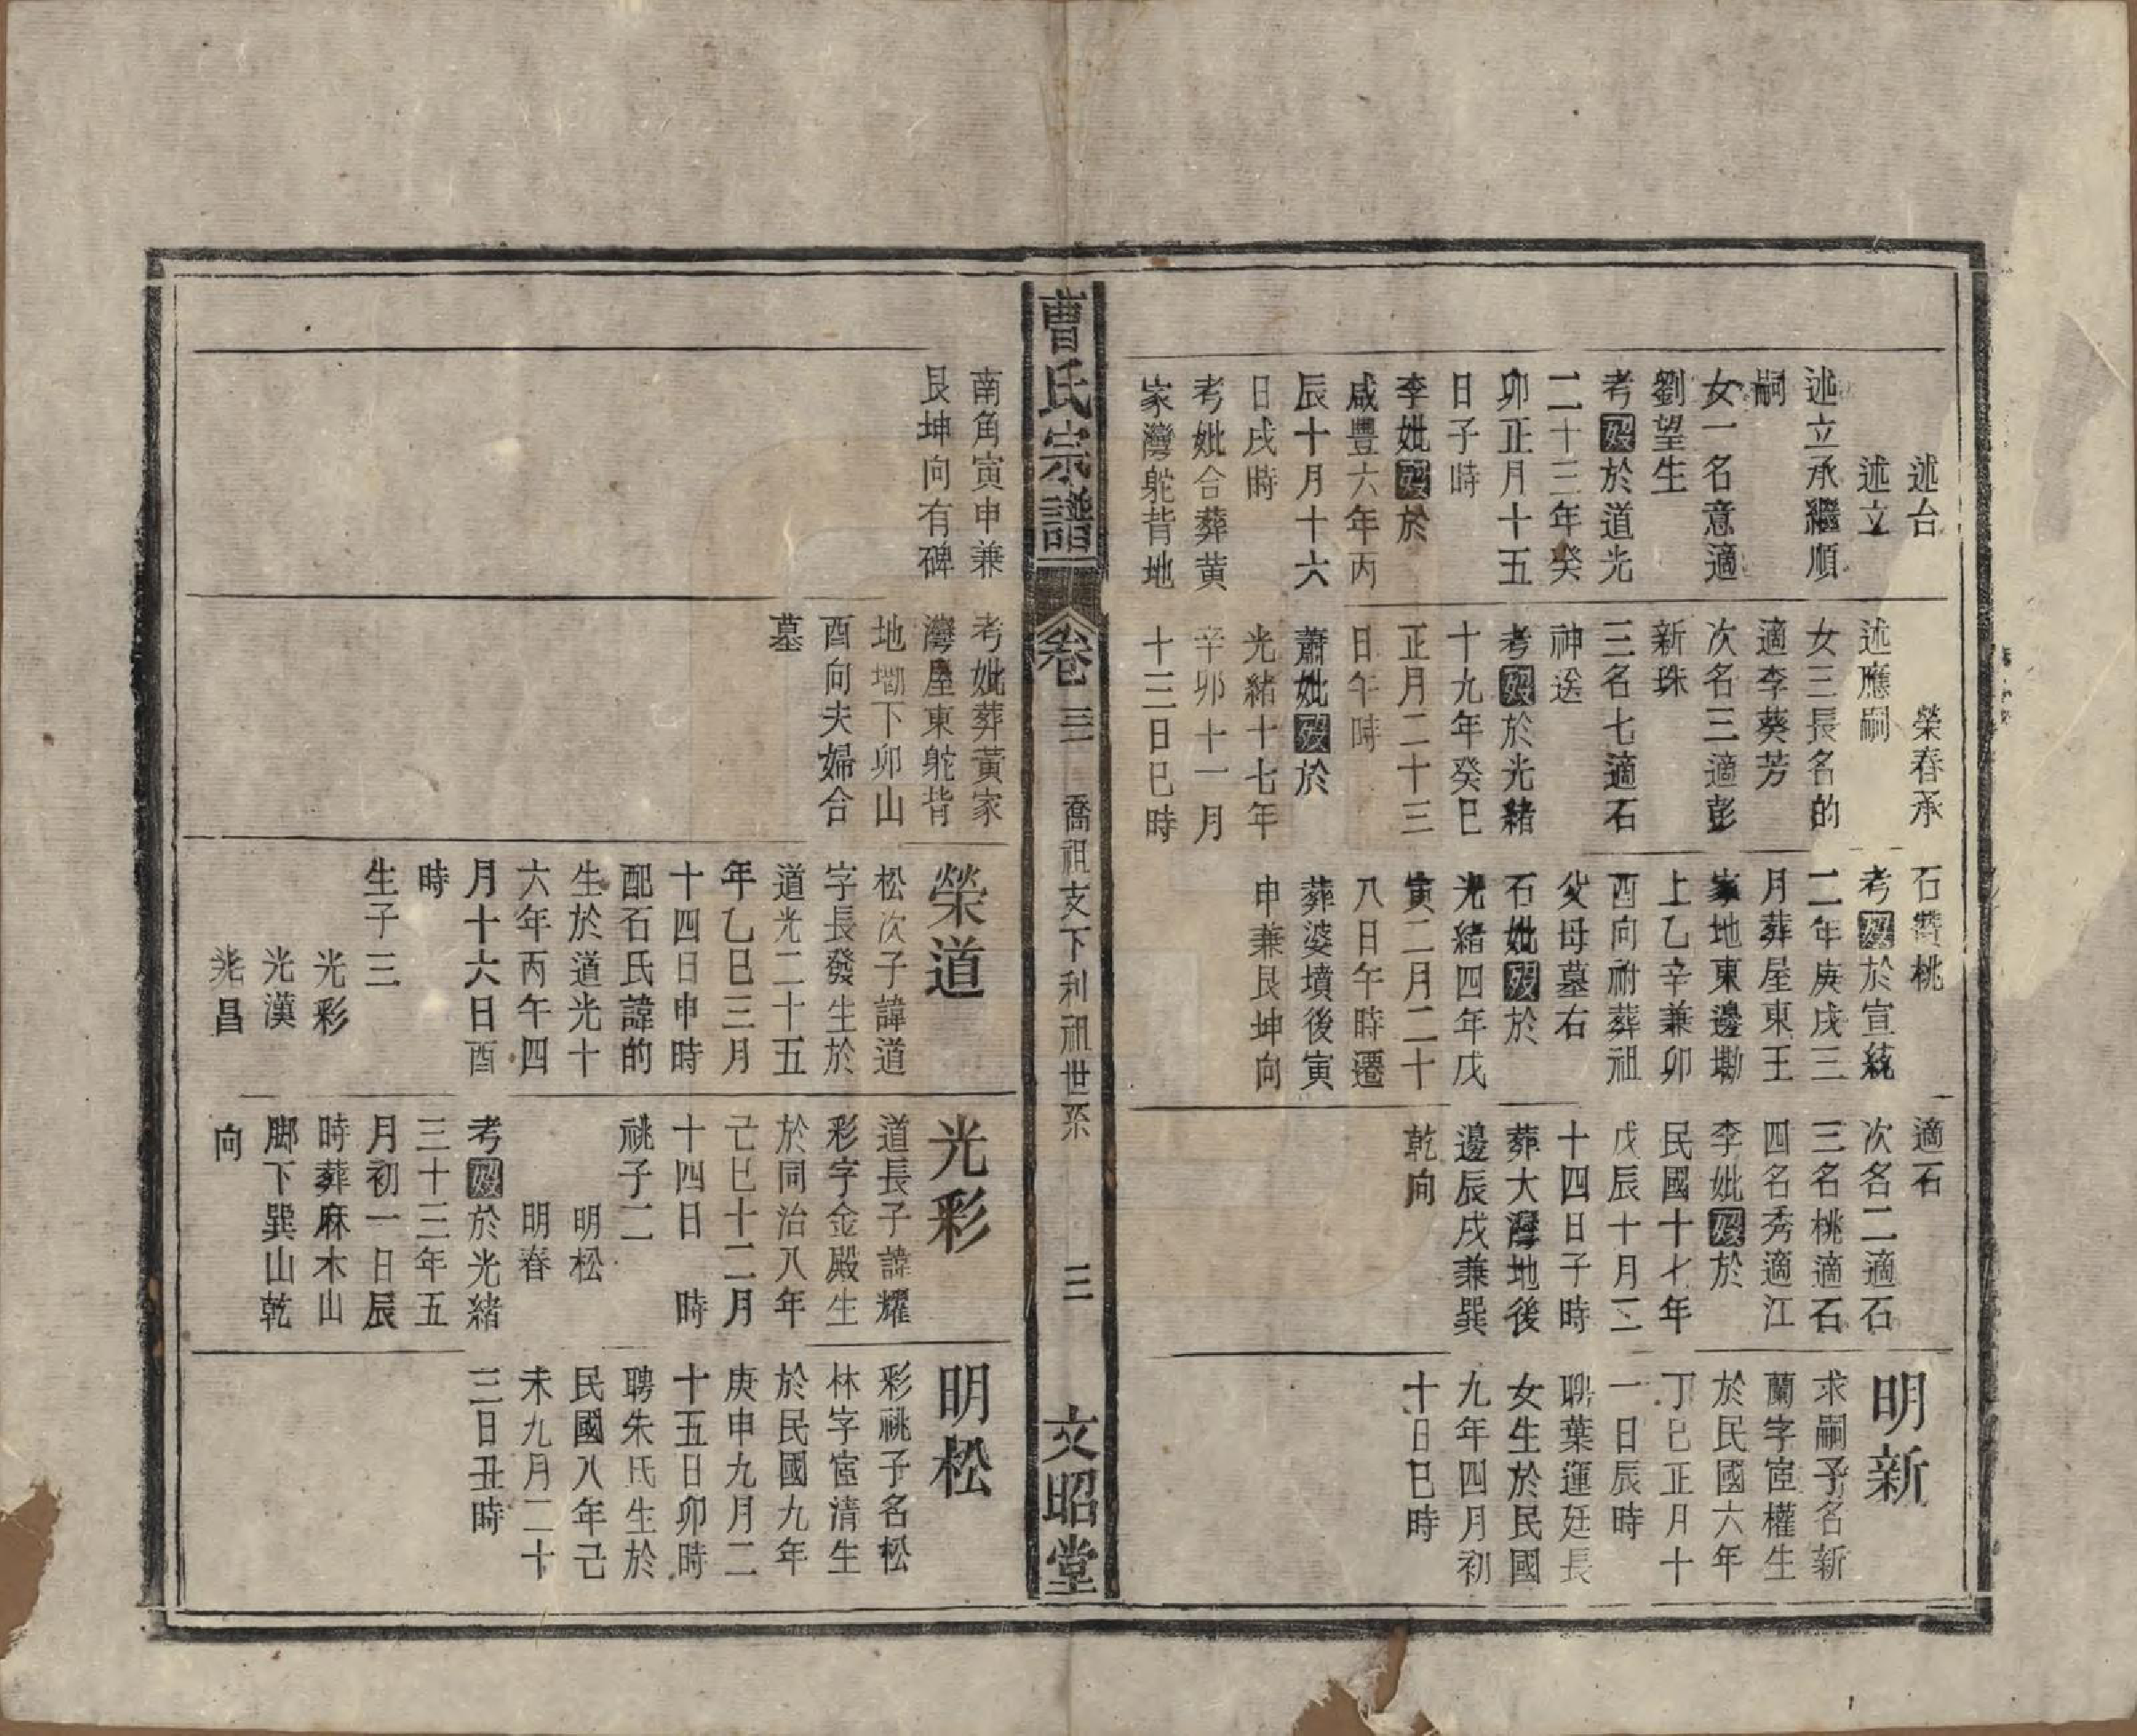 述台
述立
述立承繼順
嗣
女一名意適
劉望生
考殁於道光
二十三年癸
卯正月十五
日子時
李妣殁於
咸豐六年丙
辰十月十六
日戌時
考妣合葬黃
家灣舵背地
榮春承
述應嗣
女三長名的
適李葵芳
次名三適彭
新珠
三名七適石
神送
考殁於光緒
十九年癸巳
正月二十三
日午時
蕭妣殁於
光緒十七年
辛卯十一月
十三日巳時
石贊桃
考殁於宣統
二年庚戌三
月葬屋東王
家地東邊墈
上乙辛兼卯
酉向祔葬祖
父母墓右
石妣殁於
光緒四年戊
寅二月二十
八日午時遷
葬婆墳後寅
申兼艮坤向
適石
次名二適石
三名桃適石
四名秀適江
李妣殁於
民國十七年
戊辰十月二
十四日子時
葬大灣地後
邊辰戌兼巽
乾向
明新
求嗣子名新
蘭字宦權生
於民國六年
丁巳正月十
一日辰時
聘葉運廷長
女生於民國
九年四月初
十日巳時
曹氏宗譜
卷三
喬祖支下利祖世系
三
文昭堂
南角寅申兼
艮坤向有碑
考妣葬黃家
灣屋東舵背
地墈下卯山
酉向夫婦合
墓
榮道
松次子諱道
字長發生於
道光二十五
年乙巳三月
十四日申時
配石氏諱的
生於道光十
六年丙午四
月十六日酉
時
生子三
光彩
光漢
光昌
光彩
道長子諱耀
彩字金殿生
於同治八年
己巳十二月
十四日 時
祧子二
明松
明春
考殁於光緒
三十三年五
月初一日辰
時葬麻木山
脚下巽山乾
向
明松
彩祧子名松
林字宦清生
於民國九年
庚申九月二
十五日卯時
聘朱氏生於
民國八年己
未九月二十
三日丑時